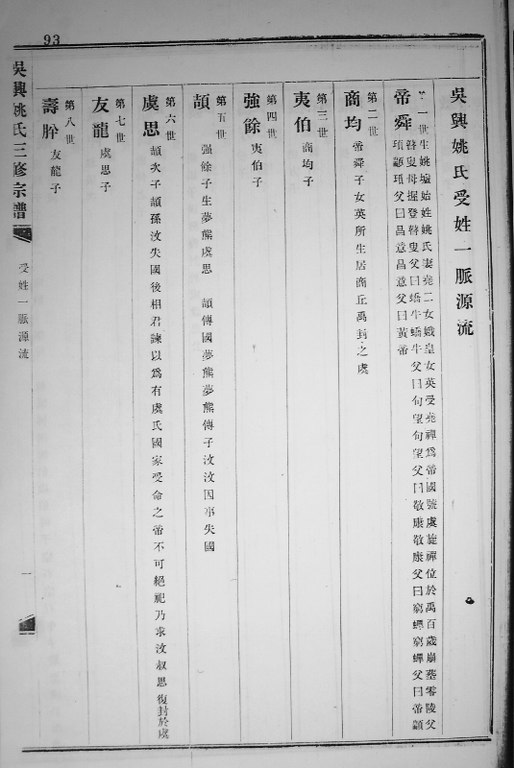 93
吳興姚氏受姓一脈源流
第一世
帝舜
生姚墟始姓姚氏妻堯二女娥皇女英受堯禪為帝國號虞旋禪位於禹百歲崩葬零陵父
瞽叟母握登瞽叟父曰蟜牛蟜牛父曰句望句望父曰敬康敬康父曰窮蟬窮蟬父曰帝顓
頊顓頊父曰昌意昌意父曰黃帝
第二世
商均 帝舜子女英所生居商丘禹封之虞
第三世
夷伯 商均子
第四世
強餘 夷伯子
第五世
頡 强餘子生夢熊虞思 頡傳國夢熊夢熊傳子汶汶因事失國
第六世
虞思 頡次子頡孫汶失國後相君諫以為有虞氏國家受命之帝不可絕祀乃求汶叔思復封於虞
第七世
友龍 虞思子
第八世
壽 友龍子
吳興姚氏三修宗譜
受姓一脈源流
一